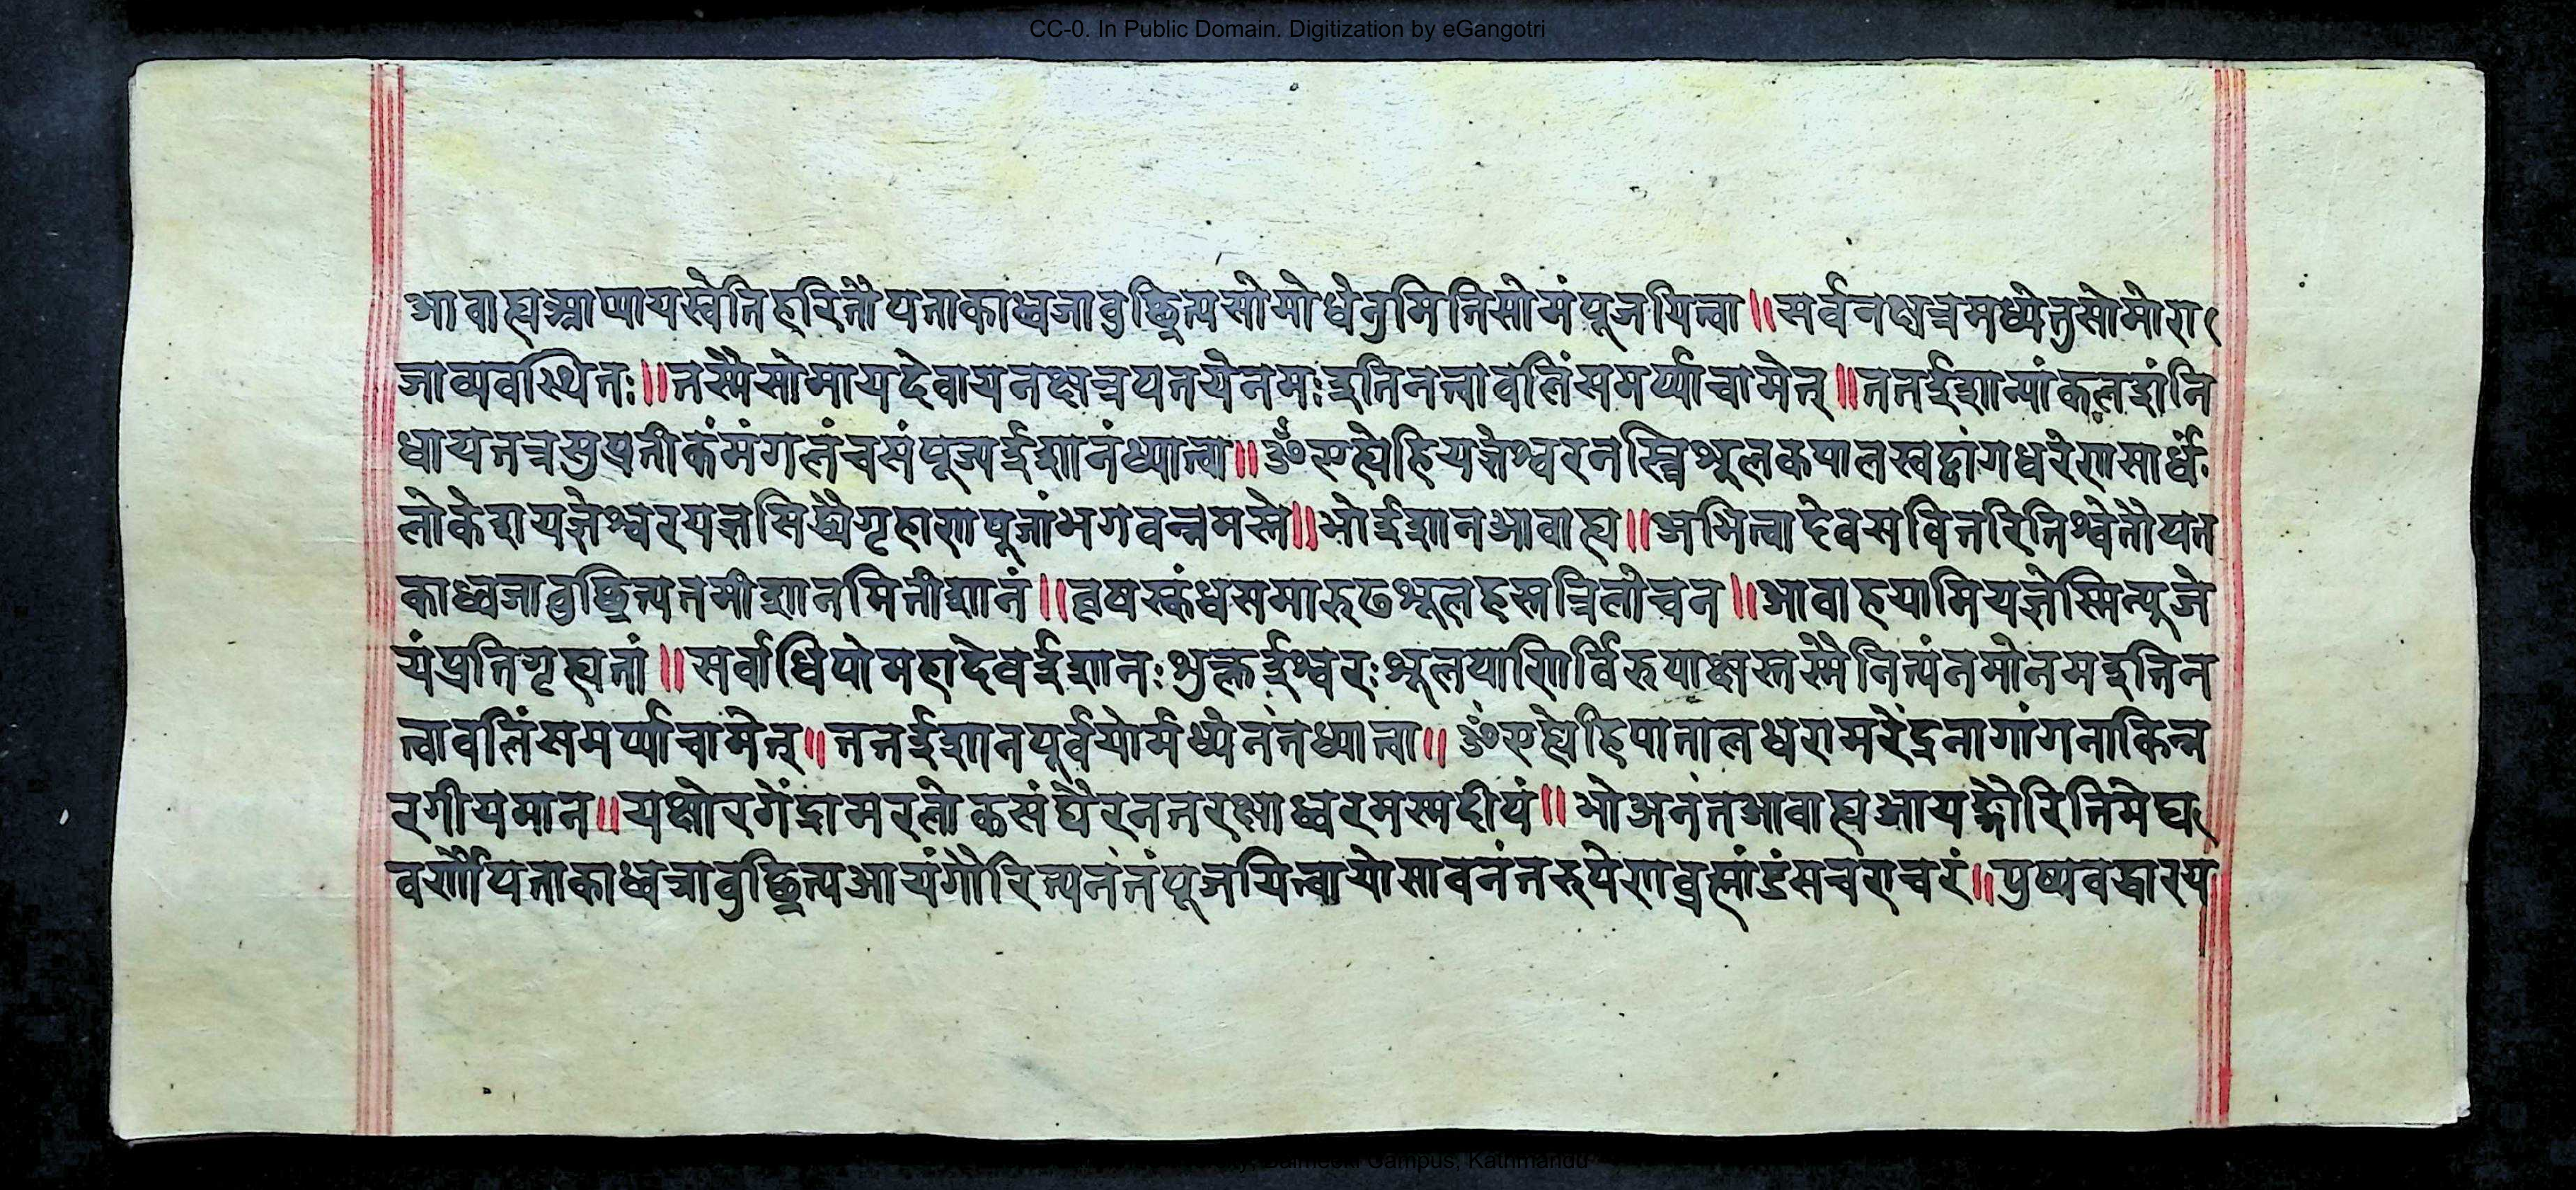 CC-0. In Public Domain. Digitization by eGangotri
आवाह्यआप्यायस्वेतिहरितौपताकाध्वजावुछ्रित्यसोमोधेनुमितिसोमंपूजयित्वा॥सर्वनक्षत्रमध्येतुसोमोरा
जाव्यवस्थितः॥तस्मैसोमायदेवायनक्षत्रपतयेनमःइतिनत्वावलिंसमर्प्याचामेत्॥ततईशान्यांकलशंनि
धायतत्रसुप्रतीकंमंगलंचसंपूज्यईशानंध्यात्वा॥ॐएह्येहियज्ञेश्वरनस्त्रिशूलकपालखट्वांगधरेणसार्धं
लोकेशयज्ञेश्वरयज्ञसिद्ध्यैगृहाणपूजांभगवन्नमस्ते॥भोईशानआवाह्य॥अभित्वादेवसवितरितिश्वेतौपत
काध्वजावुछ्रित्यतमीशानमितीशानं॥वृषस्कंधसमारुढशूलहस्तत्रिलोचन॥आवाहयामियज्ञेस्मिन्पूजे
यंप्रतिगृह्यतां॥सर्वाधिपोमहादेवईशानःशुक्लईश्वरःशूलपाणिर्विरुपाक्षस्तस्मैनित्यंनमोनमइतिन
त्वावलिंसमर्प्याचामेत्॥ततईशानपूर्वयोर्मध्येनंतंध्यात्वा॥ॐएह्येहिपातालधरामरेंद्रनागांगनाकिन्न
रगीयमान॥यक्षोरगेंद्रामरलोकसंघैरनंतरक्षाध्वरमस्मदीयं॥भोअनंतआवाह्यआयङ्गौरितिमेघ
वर्णौपताकाध्वजावुछ्रित्यआयंगौरित्यनंतंपूजयित्वायोसावनंतरुपेणब्रह्मांडंसचराचरं॥पुष्पवद्धारय
Campus, Kathmandu